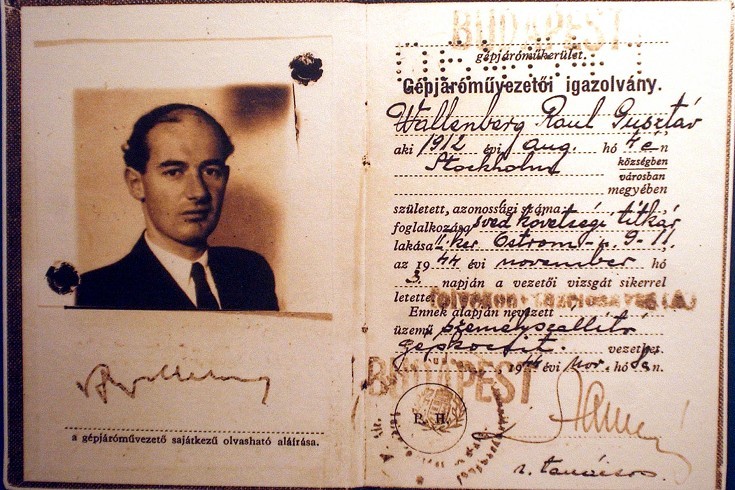 a gépjáróművezető sajátkezű olvasható aláírása.
BUDAPEST
gépjáróműkerület.
Gépjáróművezetői igazolvány.
Wallenberg Raul Gusztáv
aki 1912 évi aug. hó 4e n
Stockholm községben
városban
megyében
született, azonossági száma
foglalkozása svéd követségi titkár
lakása II. ker. Ostrom-u. 9-11.
az 1944 évi november hó
3. napján a vezetői vizsgát sikerrel
letette.
Ennek alapján nevezett
üzemű személyszállító
gépkocsit. vezethet.
BUDAPEST, 1944 évi Nov. hó n.
P. H.
r. tanácsos